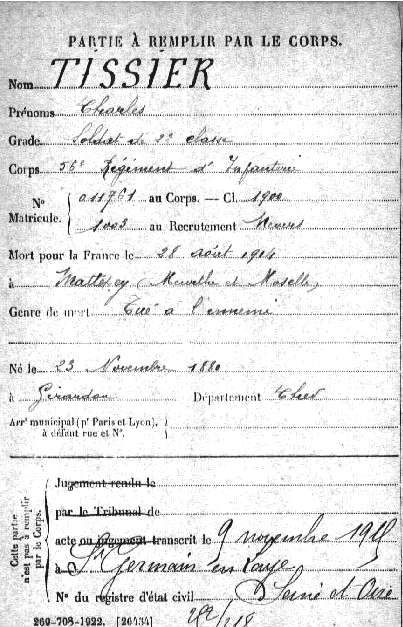 PARTIE À REMPLIR PAR LE CORPS.
Nom TISSIER
Prénoms Charles
Grade Soldat de 2e classe
Corps 56e Régiment d'Infanterie
N° Matricule. { 011761 au Corps. — Cl. 1900
1003 au Recrutement Nevers
Mort pour la France le 28 août 1914
à Mattexey (Meurthe et Moselle)
Genre de mort Tué à l'ennemi
Né le 23 Novembre 1880
à Département Cher
Arrt municipal (pr Paris et Lyon), à défaut rue et N°.
Cette partie n'est pas à remplir par le Corps.
Jugement rendu le
par le Tribunal de
acte ou jugement transcrit le 9 novembre
à St Germain en Laye
Seine et Oise
N° du registre d'état civil
269-708-1922. [26434]